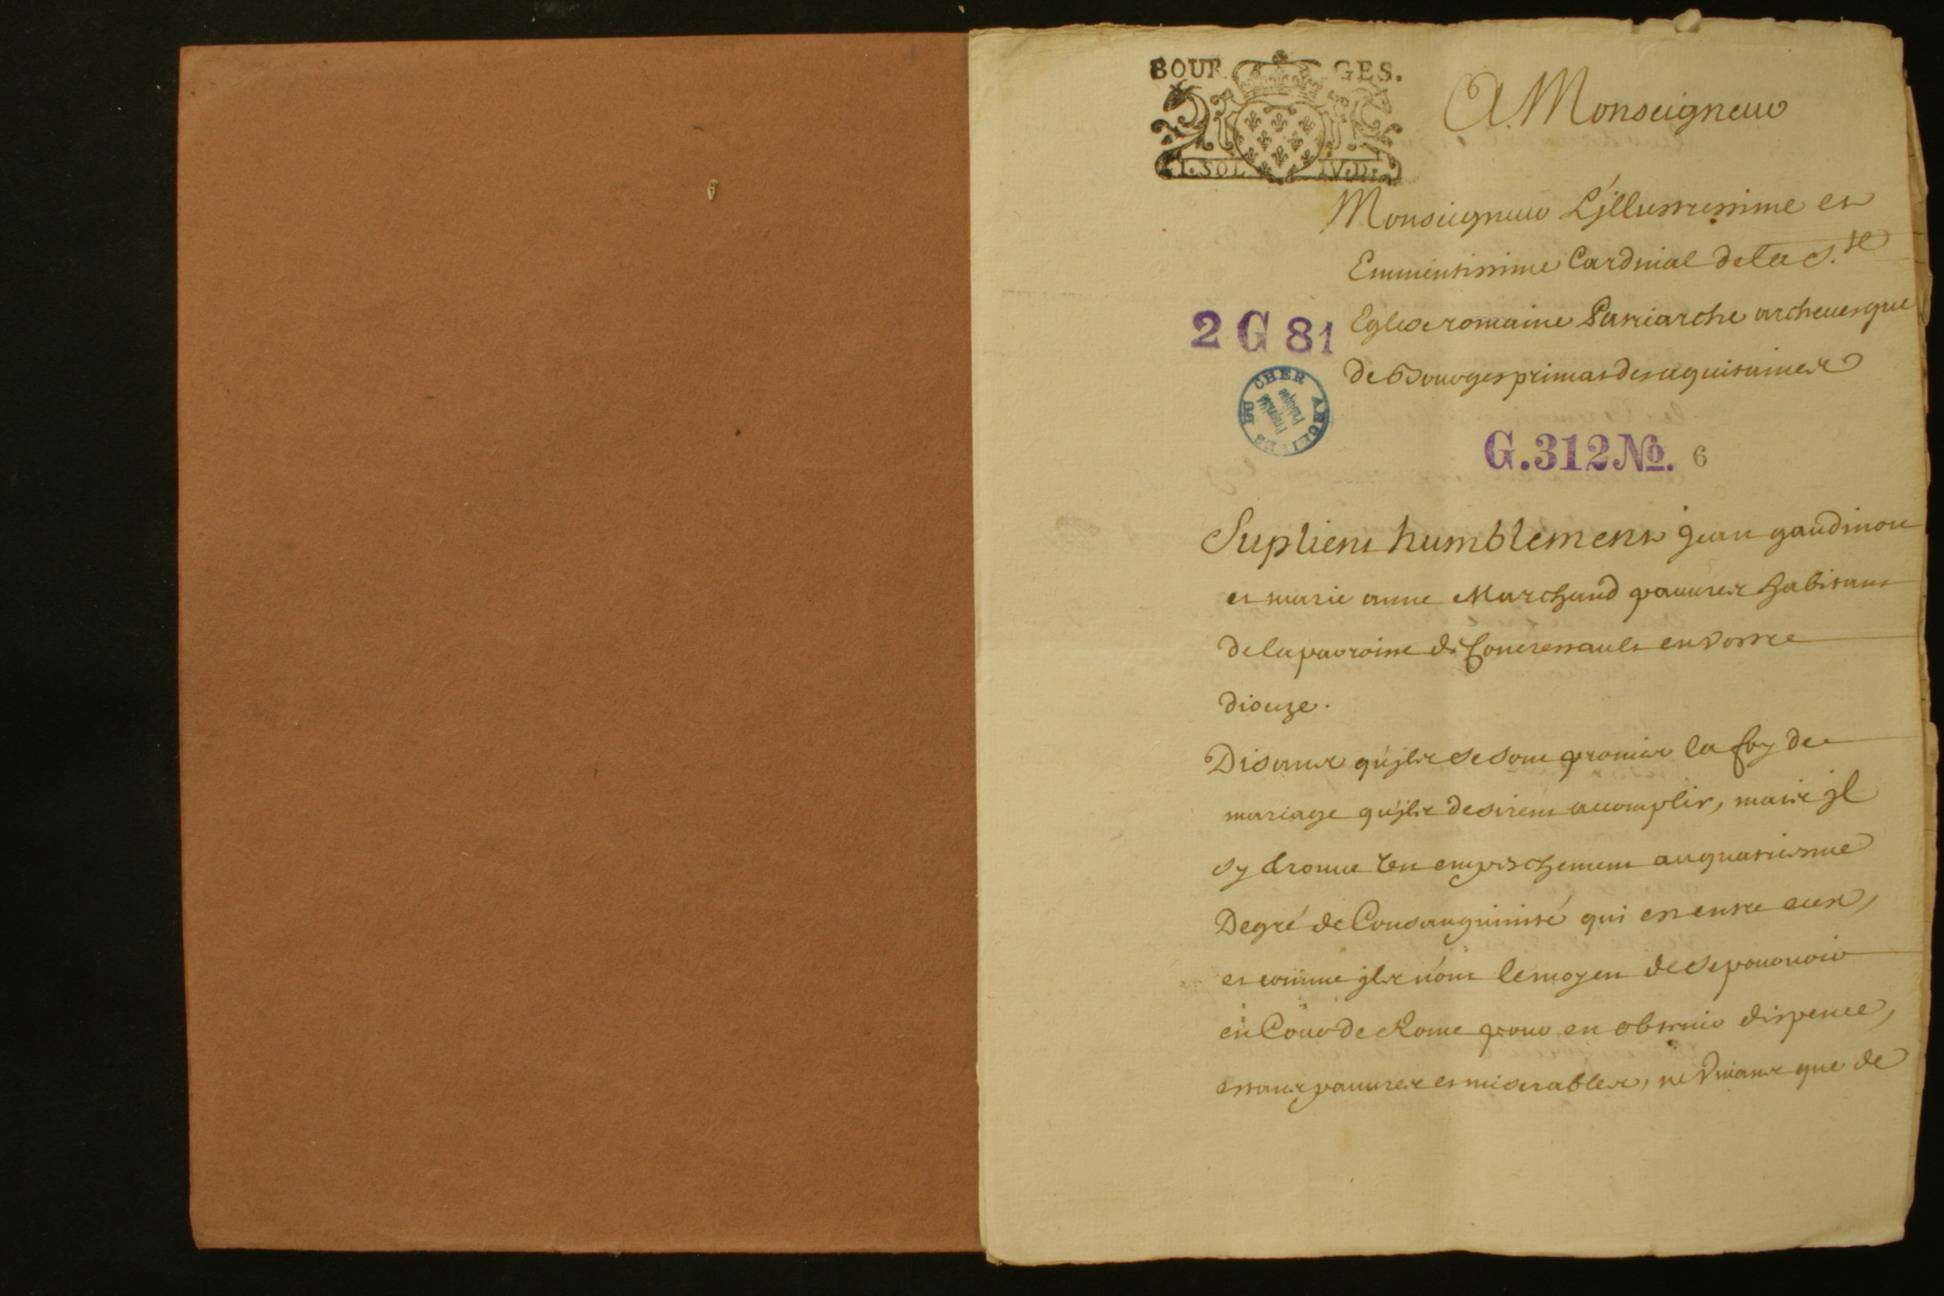 BOURGES.
A. Monseigneur
Monseigneur L'jllustrissime et
Eminentissime Cardinal de la S.te
Eglise romaine Patriarche archeuesque
2 G 81
de Bourges primat des aquitaines
ARCHIVES DU CHER
G.312 No. 6
Suplient humblement jean gaudinou
et marie anne Marchand pauures habitans
de la paroisse de Concressault en vostre
dioceze.
Disants qu'jls se sont promis la foy de
mariage qu'jls desirent accomplir, mais jl
sy trouue un empeschement au quatriesme
Degré de Consanguinité qui est entre eux,
et comme jls n'ont le moyen de se pouruoir
en Cour de Rome pour en obtenir dispence,
estans pauures et miserables, ne viuans que de